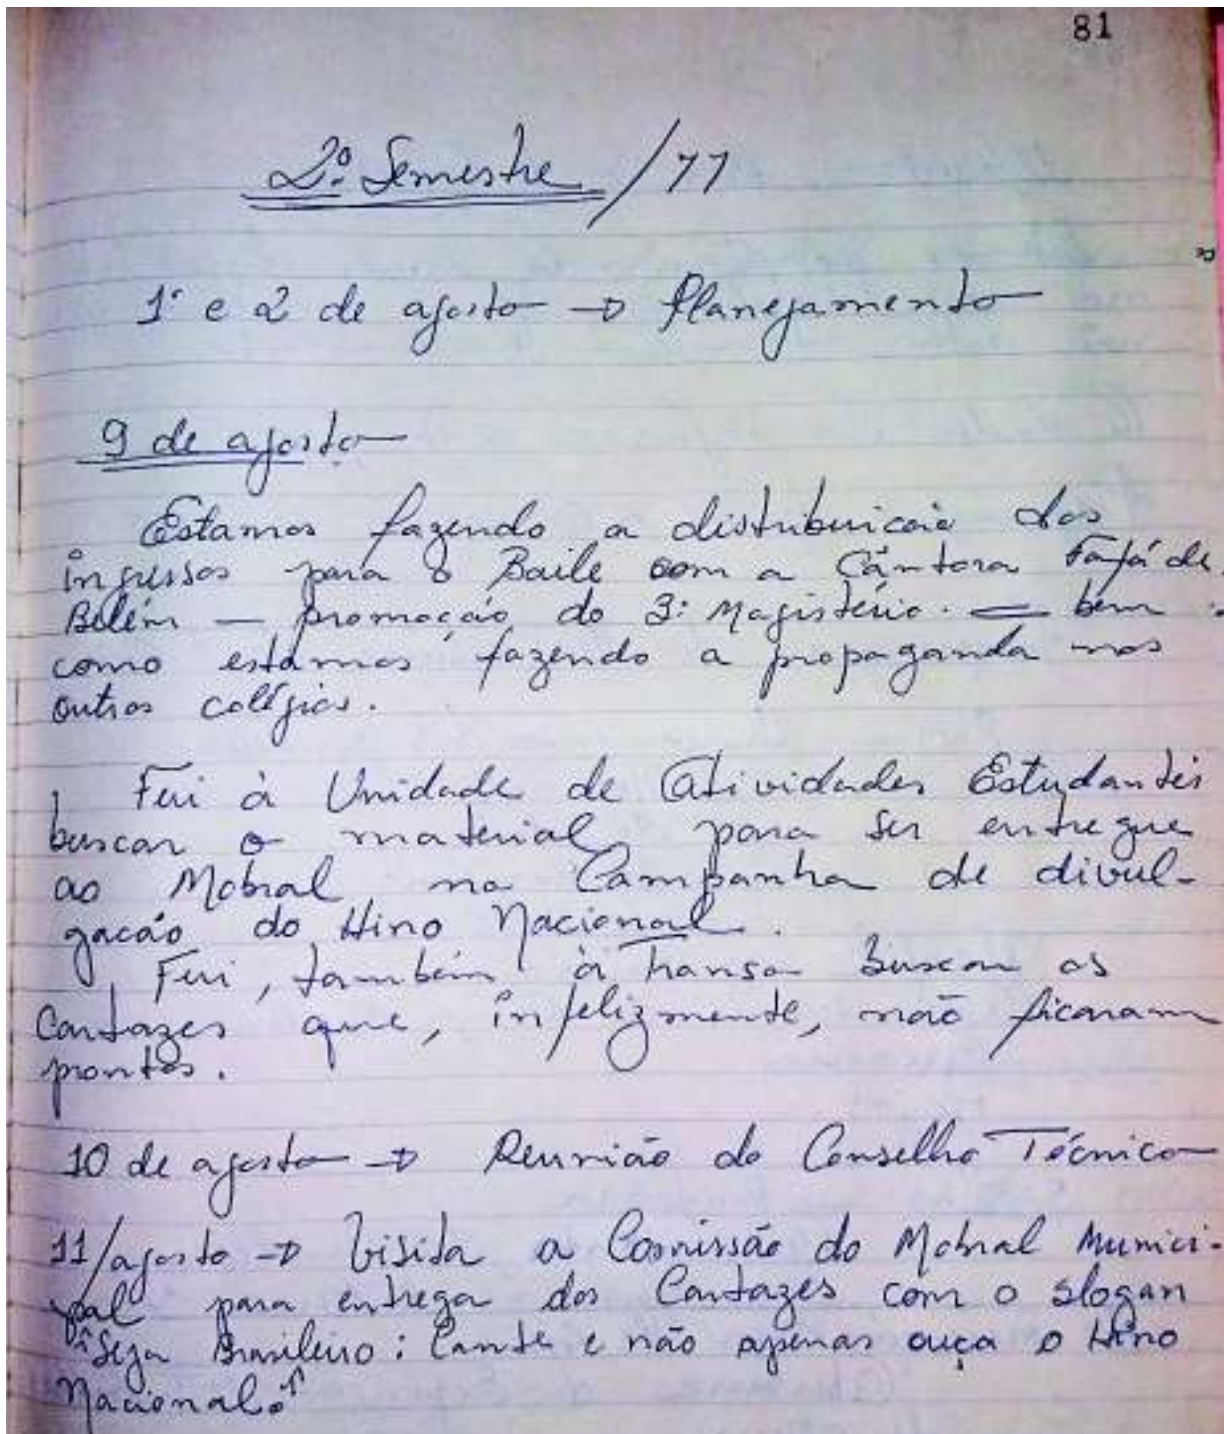 81
2º Semestre /77
1º e 2 de agosto → Planejamento
9 de agosto
Estamos fazendo a distribuicão dos
ingressos para o Baile com a Cantora Fafá de
Belém — promoção do 3º Magistério. — bem
como estamos fazendo a propaganda nos
outros colégios.
Fui à Unidade de Atividades Estudantis
buscar o material para ser entregue
ao Mobral na Campanha de divul-
gacão do Hino Nacional.
Fui, também à Transa buscar os
Cartazes que, infelizmente, não ficaram
prontos.
10 de agosto → Reunião do Conselho Técnico
11/agosto → Visita a Comissão do Mobral Munici-
pal para entrega dos Cartazes com o slogan
"Seja Brasileiro: Cante e não apenas ouça o Hino
Nacional."